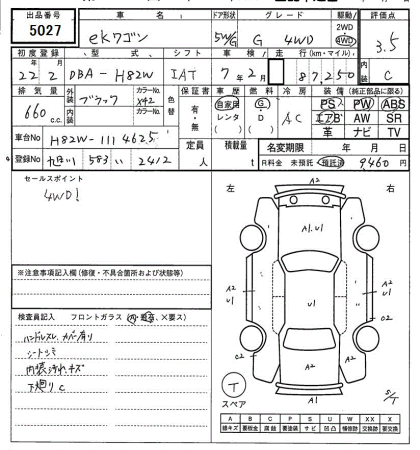 出品番号 車名 ドア形状 グレード 駆動 評価点
5027 ekワゴン 5W/G G 4WD 2WD 4WD 3.5
初度登録 型式 シフト 車検 走行(km・マイル) 内装
22年2月 DBA-H82W IAT 7年2月 87,250 C
排気量 外装 ブラック カラーNo. X42 色替 保証書 車歴 燃料 冷房 装備(純正部品に限る)
660 c.c. 内装 カラーNo. 有・無 自家用 レンタ G D AC PS PW ABS
エアB AW SR
革 ナビ TV
車台No H82W-1114625 定員 人 積載量 t 名変期限 年 月 日
登録No 583 い 2412 R料金 未預託 預託済 9,460円
セールスポイント
4WD!
左 右
A2
A1.U1
A2
U1
U1
A2
U1
C2
C2
A2
A2
A1
T
スペア
S/T
※注意事項記入欄(修復・不具合箇所および状態等)
検査員記入 フロントガラス(・・×要ス)
ハンドルスレ カバー有り
シートシミ
内装汚れ キズ
下廻りC
A B C P S U W XX X
線キズ 要板金 腐蝕 要塗装 サビ 凹凸 補修跡 交換済 要交換